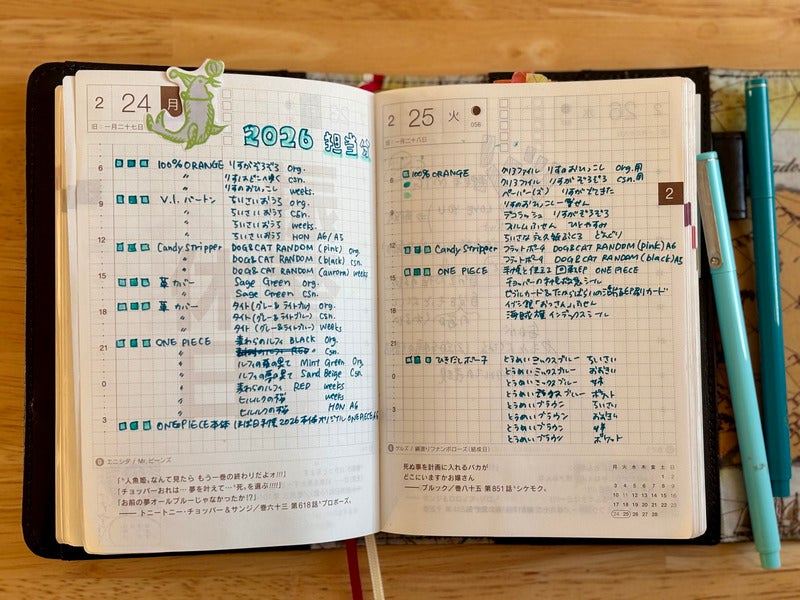 2 24 月
旧:一月二十七日
2026 担当分
6
100%ORANGE りすがぞろぞろ Org.
〃 りすスピンゆく csn.
〃 りすのおひっこし weeks.
9
V.l.バートン ちいさいおうち org.
〃 ちいさいおうち csn.
〃 ちいさいおうち weeks.
12
〃 ちいさいおうち HON A6/A5
Candy Stripper DOG&CAT RANDOM (pink) org.
〃 DOG&CAT RANDOM (black) csn.
〃 DOG&CAT RANDOM (aurora) weeks
15
革カバー Sage Green org.
〃 Sage Green csn.
18
革カバー タイト(グレー&ライトブルー) org.
〃 タイト(グレー&ライトブルー) csn.
〃 タイト(グレー&ライトブルー) weeks
21
ONE PIECE 麦わらのルフィ BLACK Org.
〃 csn.
〃 ルフィの夢の果て Mint Green Org.
0
〃 ルフィの夢の果て Sand Beige Csn.
〃 麦わらのルフィ RED weeks
〃 ヒルルクの桜 weeks
3
〃 ヒルルクの桜 HON A6
ONE PIECE本体 ほぼ日手帳2026本体オリジナル ONE PIECE A6
エニシダ / Mr.ビーンズ
「“人魚姫„なんて見たら もう一巻の終わりだよォ!!!」
「チョッパーおれは…夢を叶えて…“死„を選ぶ!!!!」
「お前の夢オールブルーじゃなかったか!?」
——トニートニー・チョッパー&サンジ/巻六十三 第618話“プロポーズ„
2 25 火
056
旧:一月二十八日
2
6
100%ORANGE クリアファイル りすのおひっこし Org.用
クリアファイル りすがぞろぞろ csn.用
ペーパー(ズ) りすがでてきた
9
りすのおひっこし一筆せん
デコラッシュ りすがぞろぞろ
フィルムふせん ひとやすみ
ちいさなチャス紙ぶくろ どんぐり
12
Candy Stripper フラットポーチ DOG&CAT RANDOM (pink) A6
フラットポーチ DOG&CAT RANDOM (black) A5
15
ONE PIECE 手帳と使える EP ONE PIECE
チョッパーの シール
カード
18
イガラム「おっさん」ふせん
海賊 インデックスシール
21
ひきだしポーチ とうめいミックスブルー ちいさい
とうめいミックスブルー おおきい
0
とうめいミックスブルー
とうめいミックスブルー ポケット
とうめいブラウン ちいさい
3
とうめいブラウン おおきい
とうめいブラウン
とうめいブラウン ポケット
ゲルズ / 鋼塗りワナンボローズ(結成日)
死ぬ事を計画に入れるバカが
どこにいますかお嬢さん
——ブルック/巻八十五 第851話“シケモク„
月 火 水 木 金 土 日
1 2
3 4 5 6 7 8 9
10 11 12 13 14 15 16
17 18 19 20 21 22 23
24 25 26 27 28